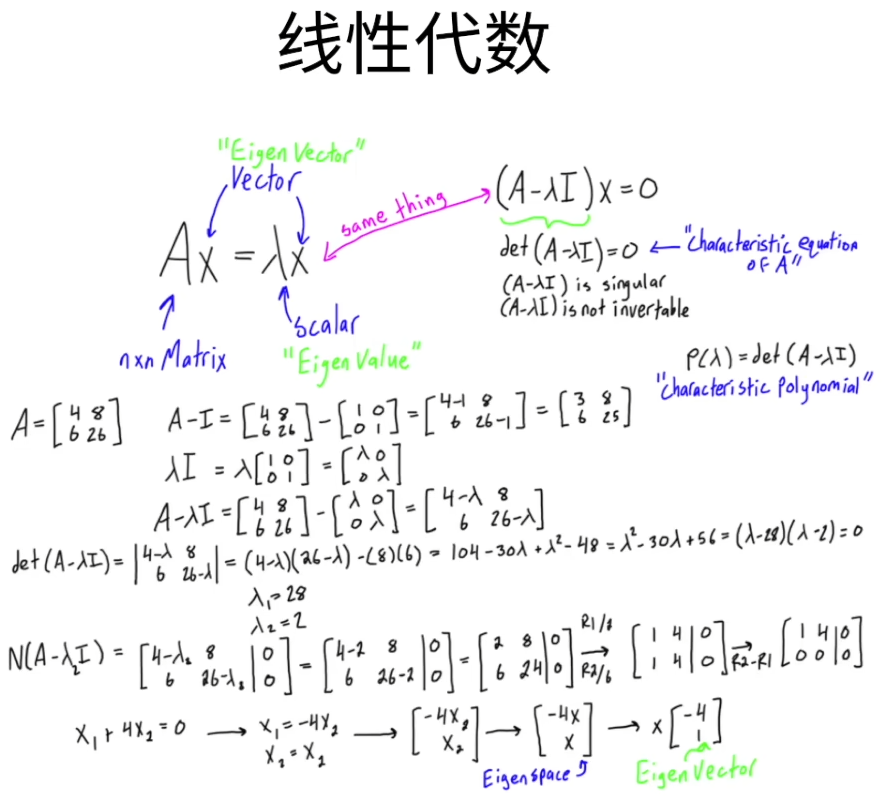 线性代数
"Eigen Vector"
Vector
same thing
(A-λI)x=0
Ax = λx
det(A-λI)=0 ← "characteristic equation
OF A"
(A-λI) is singular
(A-λI) is not invertable
scalar
nxn Matrix
"Eigen Value"
P(λ)=det(A-λI)
"characteristic Polynomial"
A=[4 8; 6 26] A-I=[4 8; 6 26]-[1 0; 0 1]=[4-1 8; 6 26-1]=[3 8; 6 25]
λI = λ[1 0; 0 1]=[λ 0; 0 λ]
A-λI=[4 8; 6 26]-[λ 0; 0 λ]=[4-λ 8; 6 26-λ]
det(A-λI)=|4-λ 8; 6 26-λ|=(4-λ)(26-λ)-(8)(6)=104-30λ+λ²-48=λ²-30λ+56=(λ-28)(λ-2)=0
λ₁=28
λ₂=2
N(A-λ₂I)=[4-λ₂ 8|0; 6 26-λ₂|0]=[4-2 8|0; 6 26-2|0]=[2 8|0; 6 24|0] R1/2 → R2/6 [1 4|0; 1 4|0] → R2-R1 [1 4|0; 0 0|0]
x₁+4x₂=0 → x₁=-4x₂ x₂=x₂ → [-4x₂; x₂] → [-4x; x] → x[-4; 1]
Eigenspace
EigenVector